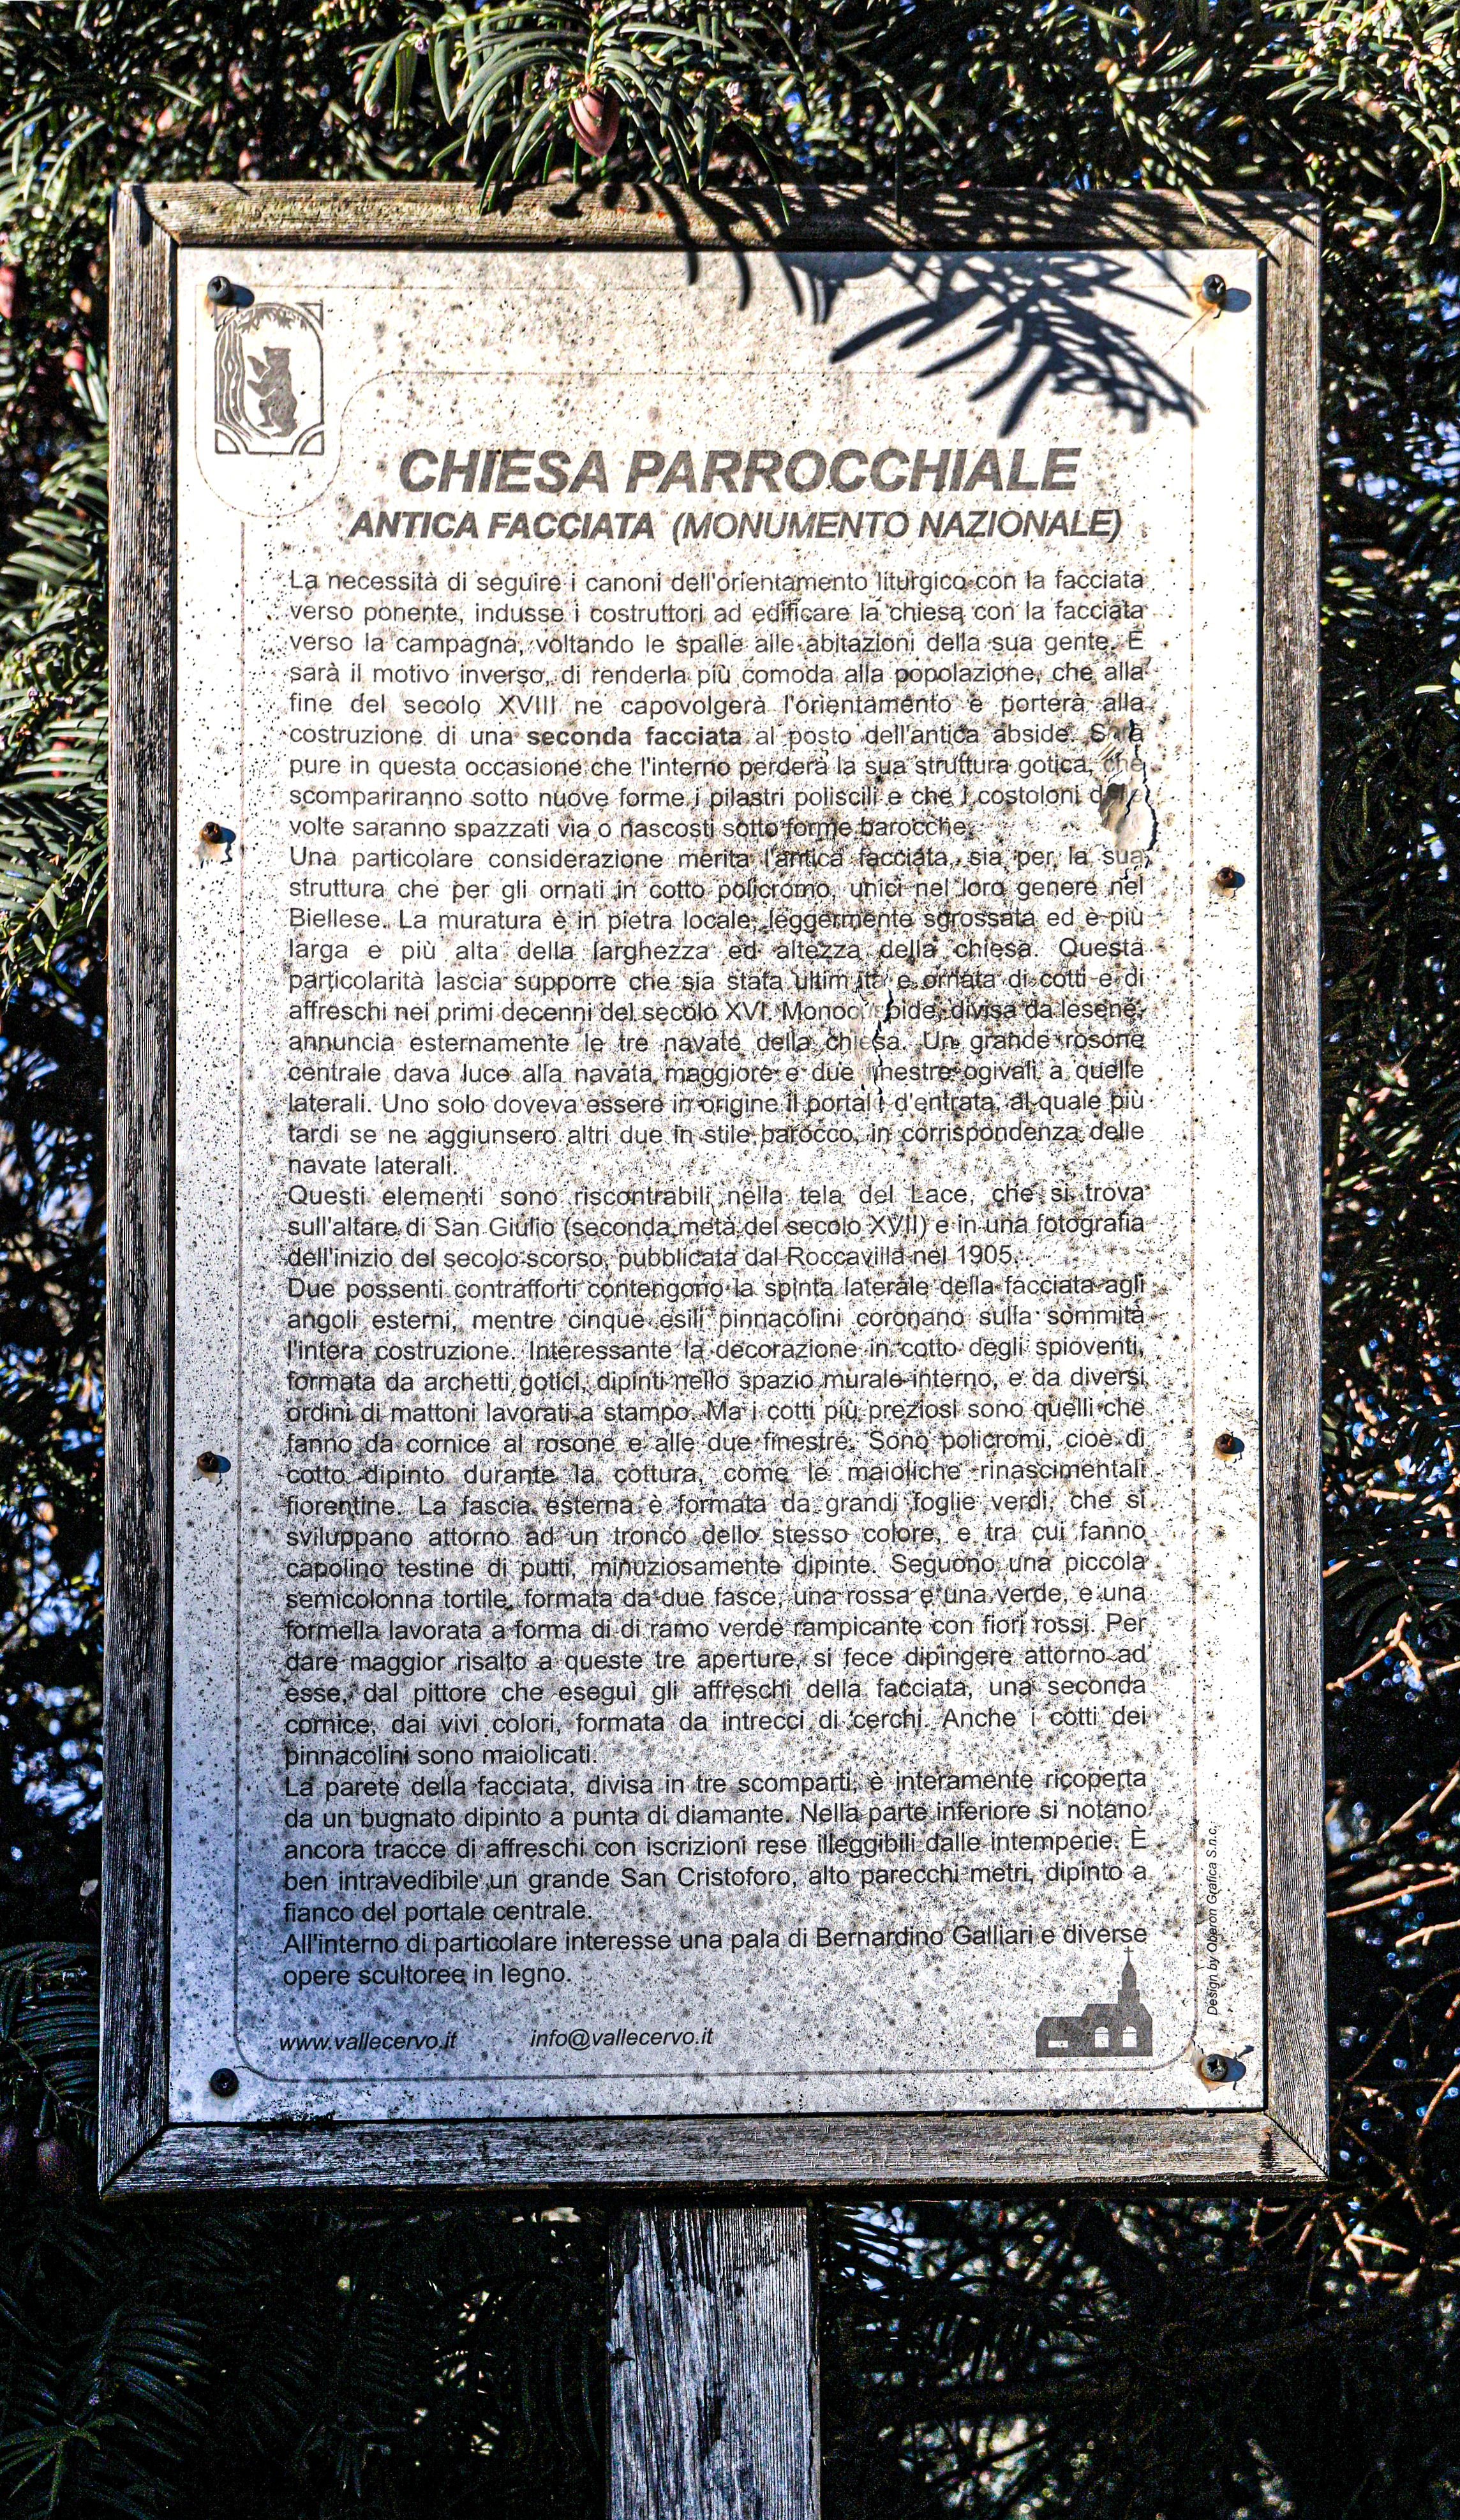 CHIESA PARROCCHIALE
ANTICA FACCIATA (MONUMENTO NAZIONALE)
La necessità di seguire i canoni dell'orientamento liturgico con la facciata
verso ponente, indusse i costruttori ad edificare la chiesa con la facciata
verso la campagna, voltando le spalle alle abitazioni della sua gente. E
sarà il motivo inverso, di renderla più comoda alla popolazione, che alla
fine del secolo XVIII ne capovolgerà l'orientamento e porterà alla
costruzione di una seconda facciata al posto dell'antica abside.
pure in questa occasione che l'interno perderà la sua struttura gotica, che
scompariranno sotto nuove forme i pilastri poliscili e che i costoloni
volte saranno spazzati via o nascosti sotto forme barocche.
Una particolare considerazione merita l'antica facciata, sia per la sua
struttura che per gli ornati in cotto policromo, unici nel loro genere nel
Biellese. La muratura è in pietra locale, leggermente sgrossata ed è più
larga e più alta della larghezza ed altezza della chiesa. Questa
particolarità lascia supporre che sia stata ultimata e ornata di cotti e di
affreschi nei primi decenni del secolo XVI. divisa da lesene,
annuncia esternamente le tre navate della chiesa. Un grande rosone
centrale dava luce alla navata maggiore e due finestre ogivali a quelle
laterali. Uno solo doveva essere in origine il portale d'entrata, al quale più
tardi se ne aggiunsero altri due in stile barocco, in corrispondenza delle
navate laterali.
Questi elementi sono riscontrabili nella tela del Lace, che si trova
sull'altare di San Giulio (seconda metà del secolo XVII) e in una fotografia
dell'inizio del secolo scorso, pubblicata dal Roccavilla nel 1905.
Due possenti contrafforti contengono la spinta laterale della facciata agli
angoli esterni, mentre cinque esili pinnacolini coronano sulla sommità
l'intera costruzione. Interessante la decorazione in cotto degli spioventi,
formata da archetti gotici, dipinti nello spazio murale interno, e da diversi
ordini di mattoni lavorati a stampo. Ma i cotti più preziosi sono quelli che
fanno da cornice al rosone e alle due finestre. Sono policromi, cioè di
cotto dipinto durante la cottura, come le maioliche rinascimentali
fiorentine. La fascia esterna è formata da grandi foglie verdi, che si
sviluppano attorno ad un tronco dello stesso colore, e tra cui fanno
capolino testine di putti, minuziosamente dipinte. Seguono una piccola
semicolonna tortile, formata da due fasce, una rossa e una verde, e una
formella lavorata a forma di di ramo verde rampicante con fiori rossi. Per
dare maggior risalto a queste tre aperture, si fece dipingere attorno ad
esse, dal pittore che eseguì gli affreschi della facciata, una seconda
cornice, dai vivi colori, formata da intrecci di cerchi. Anche i cotti dei
pinnacolini sono maiolicati.
La parete della facciata, divisa in tre scomparti, è interamente ricoperta
da un bugnato dipinto a punta di diamante. Nella parte inferiore si notano
ancora tracce di affreschi con iscrizioni rese illeggibili dalle intemperie. È
ben intravedibile un grande San Cristoforo, alto parecchi metri, dipinto a
fianco del portale centrale.
All'interno di particolare interesse una pala di Bernardino Galliari e diverse
opere scultoree in legno.
www.vallecervo.it info@vallecervo.it
Design by Oberon Grafica S.n.c.